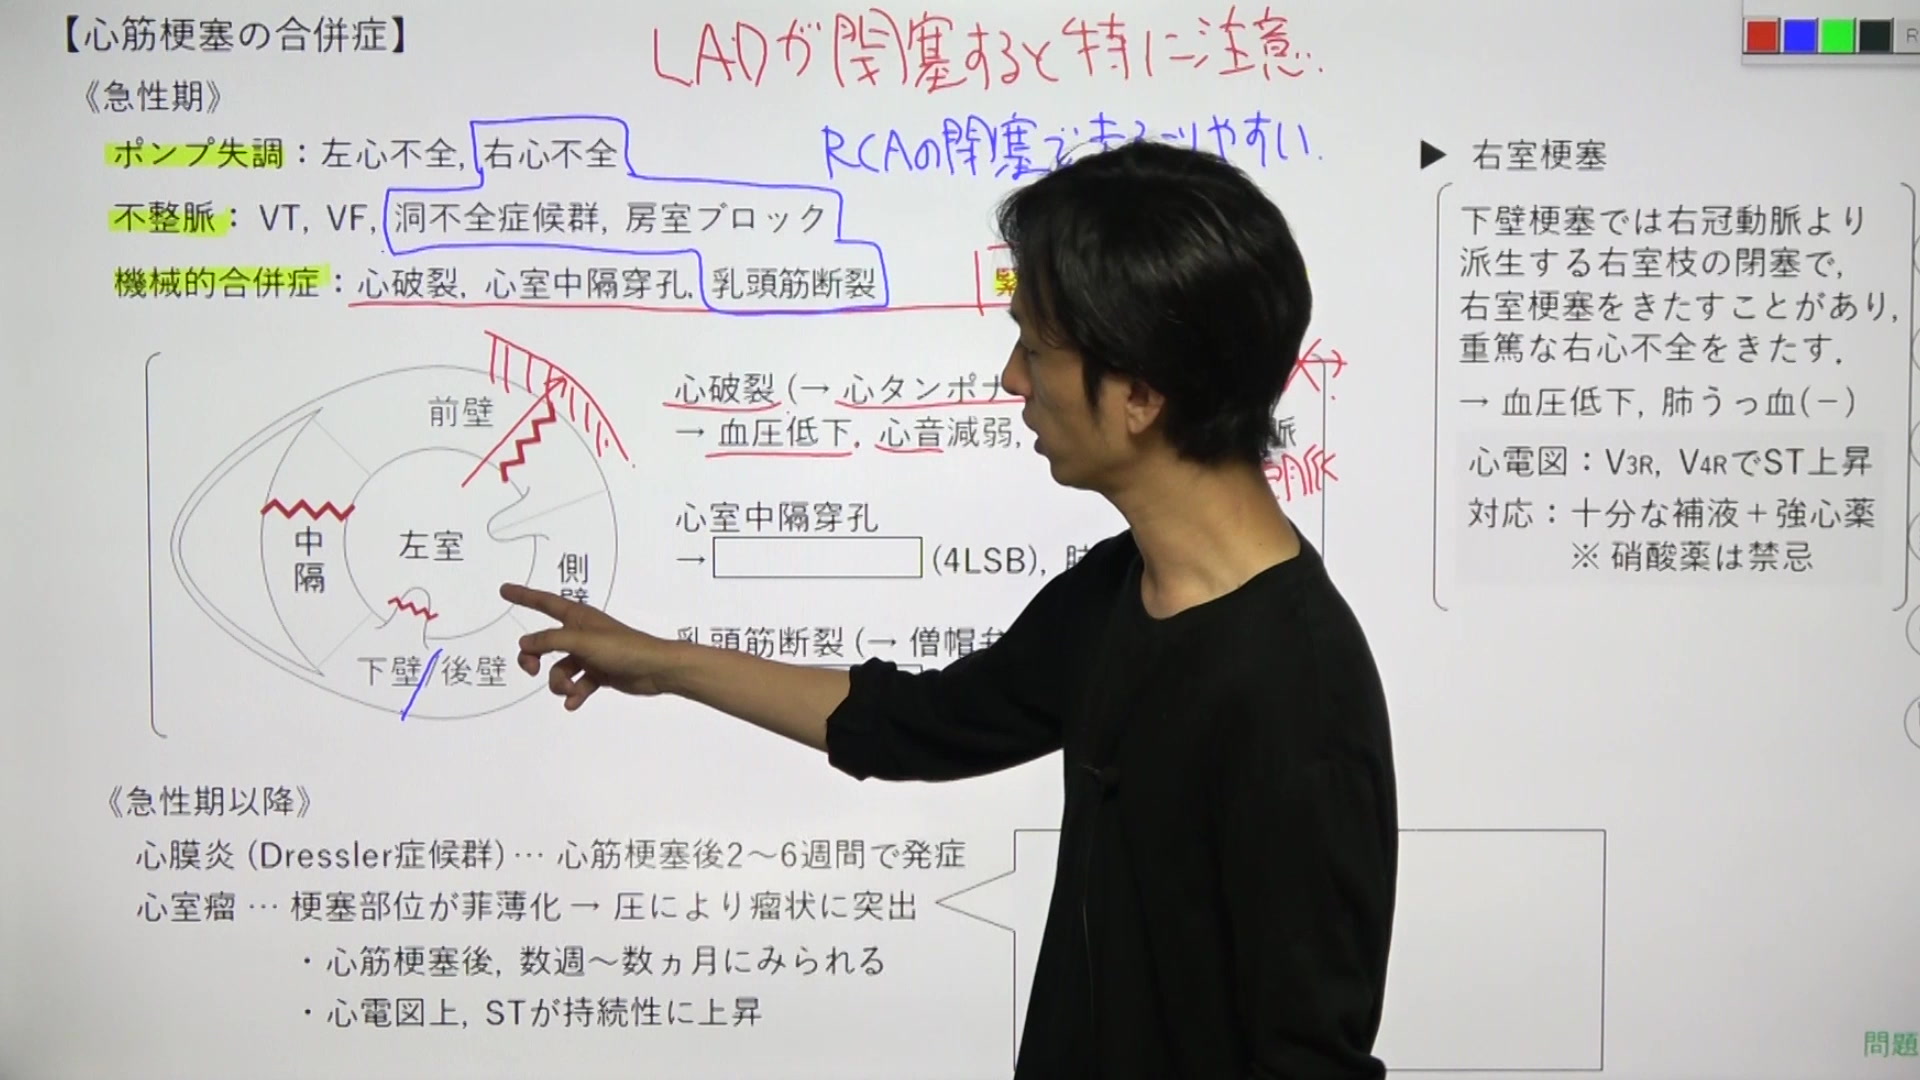 【心筋梗塞の合併症】
LADが閉塞すると特に注意.
《急性期》
RCAの閉塞で りやすい.
ポンプ失調：左心不全, 右心不全
不整脈：VT, VF, 洞不全症候群, 房室ブロック
機械的合併症：心破裂, 心室中隔穿孔, 乳頭筋断裂
前壁
中隔
左室
側壁
下壁/後壁
心破裂 (→ 心タンポナ
→ 血圧低下, 心音減弱,
脈
心室中隔穿孔
→ (4LSB),
乳頭筋断裂 (→ 僧帽弁
▶ 右室梗塞
下壁梗塞では右冠動脈より
派生する右室枝の閉塞で,
右室梗塞をきたすことがあり,
重篤な右心不全をきたす.
→ 血圧低下, 肺うっ血(−)
心電図：V3R, V4RでST上昇
対応：十分な補液＋強心薬
※ 硝酸薬は禁忌
《急性期以降》
心膜炎 (Dressler症候群) … 心筋梗塞後2〜6週間で発症
心室瘤 … 梗塞部位が菲薄化 → 圧により瘤状に突出
・心筋梗塞後, 数週〜数ヵ月にみられる
・心電図上, STが持続性に上昇
問題